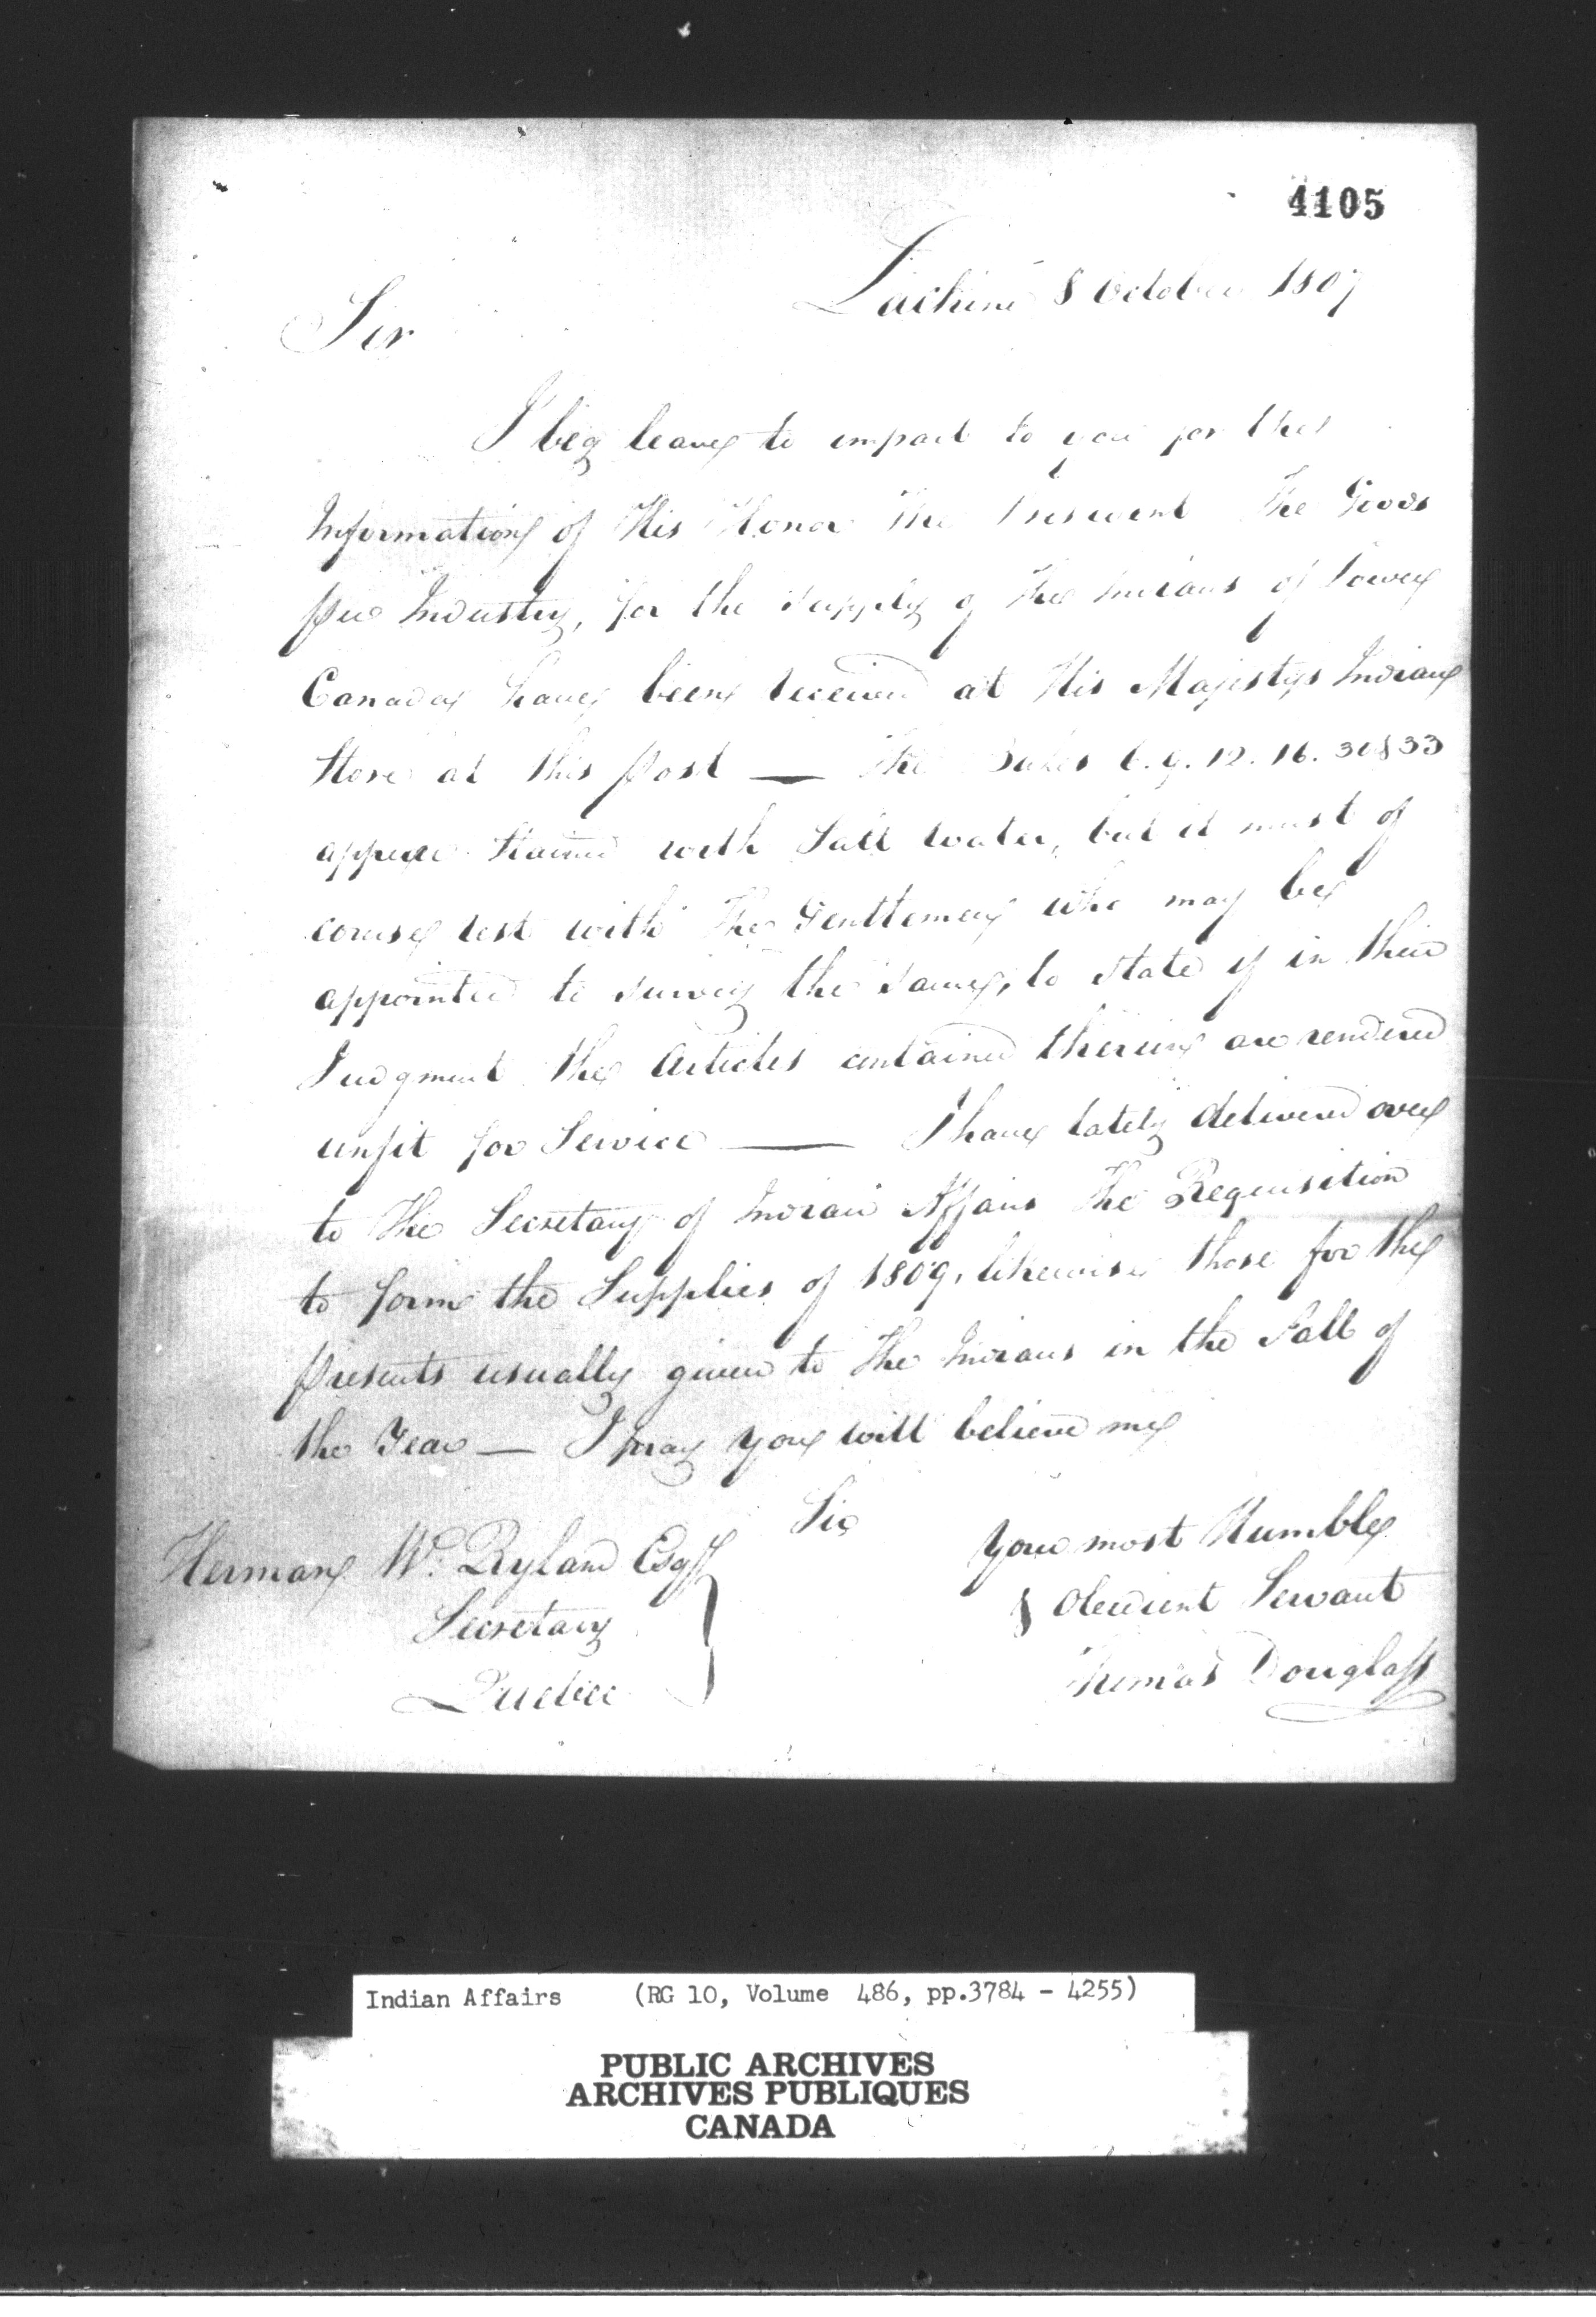 4105
Lachine 8 October 1807
Sir
I beg leave to impart to you for the
Information of His Honor the President The Goods
per Industry, for the supply of the Indians of Lower
Canada have been received at His Majestys Indian
Store at this post — The Bales 6. 9. 12. 16. 30 & 33
appear stained with Salt water, but it must of
course rest with the Gentlemen who may be
appointed to survey the same, to state if in their
Judgment the Articles contained therein are rendered
unfit for Service — I have lately delivered over
to the Secretary of Indian Affairs the Requisition
to form the Supplies of 1809, likewise those for the
presents usually given to the Indians in the Fall of
the Year — I pray you will believe me
Sir
Your most Humble
& Obedient Servant
Thomas Douglass
Herman Wm. Ryland Esqr
Secretary
Quebec
Indian Affairs (RG 10, Volume 486, pp.3784 - 4255)
PUBLIC ARCHIVES
ARCHIVES PUBLIQUES
CANADA